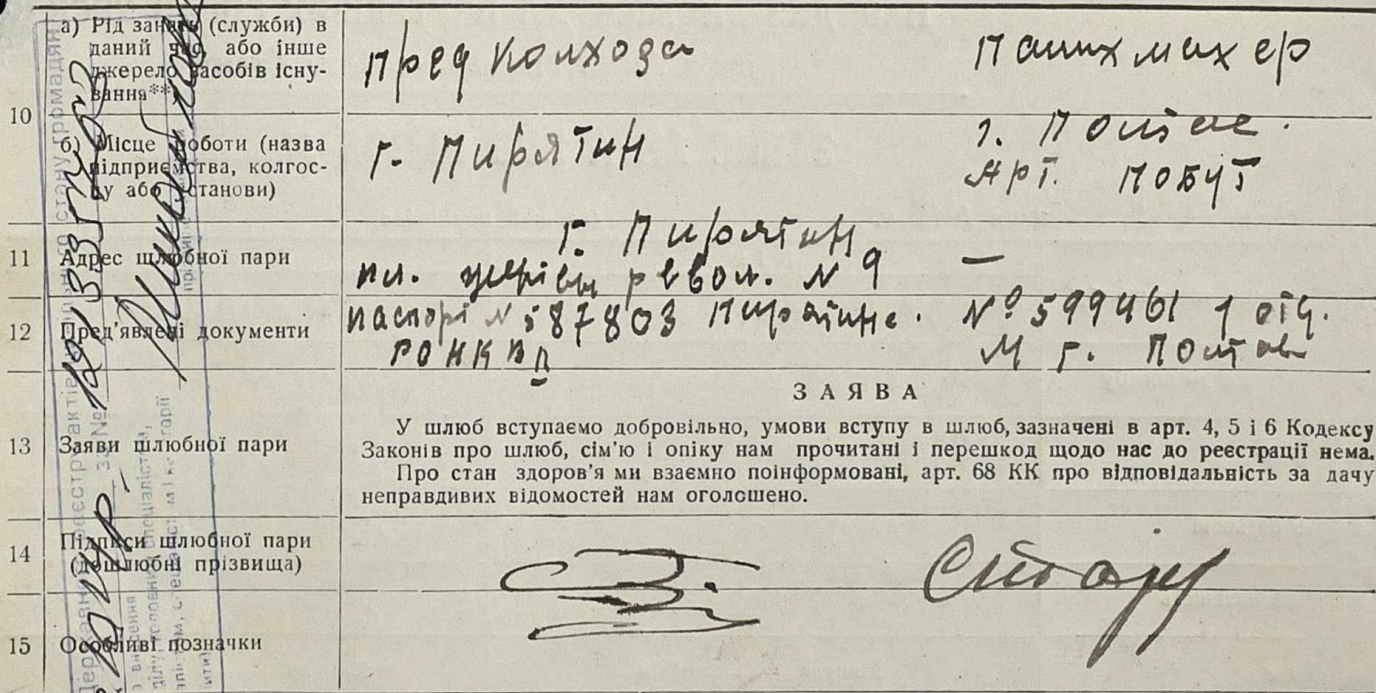 10
а) Рід занять (служби) в
даний час або інше
джерело засобів існу-
вання**
пред колхоза
Парихмахер
б) Місце роботи (назва
підприємства, колгос-
пу або установи)
г. Пирятин
г. Полтав.
Арт. ПОБУТ
11
Адрес шлюбної пари
г. Пирятин
пл. револ. № 9
—
12
Пред'явлені документи
паспорт № 587803 Пирятинс.
РОНКВД
№ 599461 1 отд.
М г. Полтавы
13
Заяви шлюбної пари
ЗАЯВА
У шлюб вступаємо добровільно, умови вступу в шлюб, зазначені в арт. 4, 5 і 6 Кодексу
Законів про шлюб, сім'ю і опіку нам прочитані і перешкод щодо нас до реєстрації нема.
Про стан здоров'я ми взаємно поінформовані, арт. 68 КК про відповідальність за дачу
неправдивих відомостей нам оголошено.
14
Підписи шлюбної пари
(дошлюбні прізвища)
15
Особливі позначки